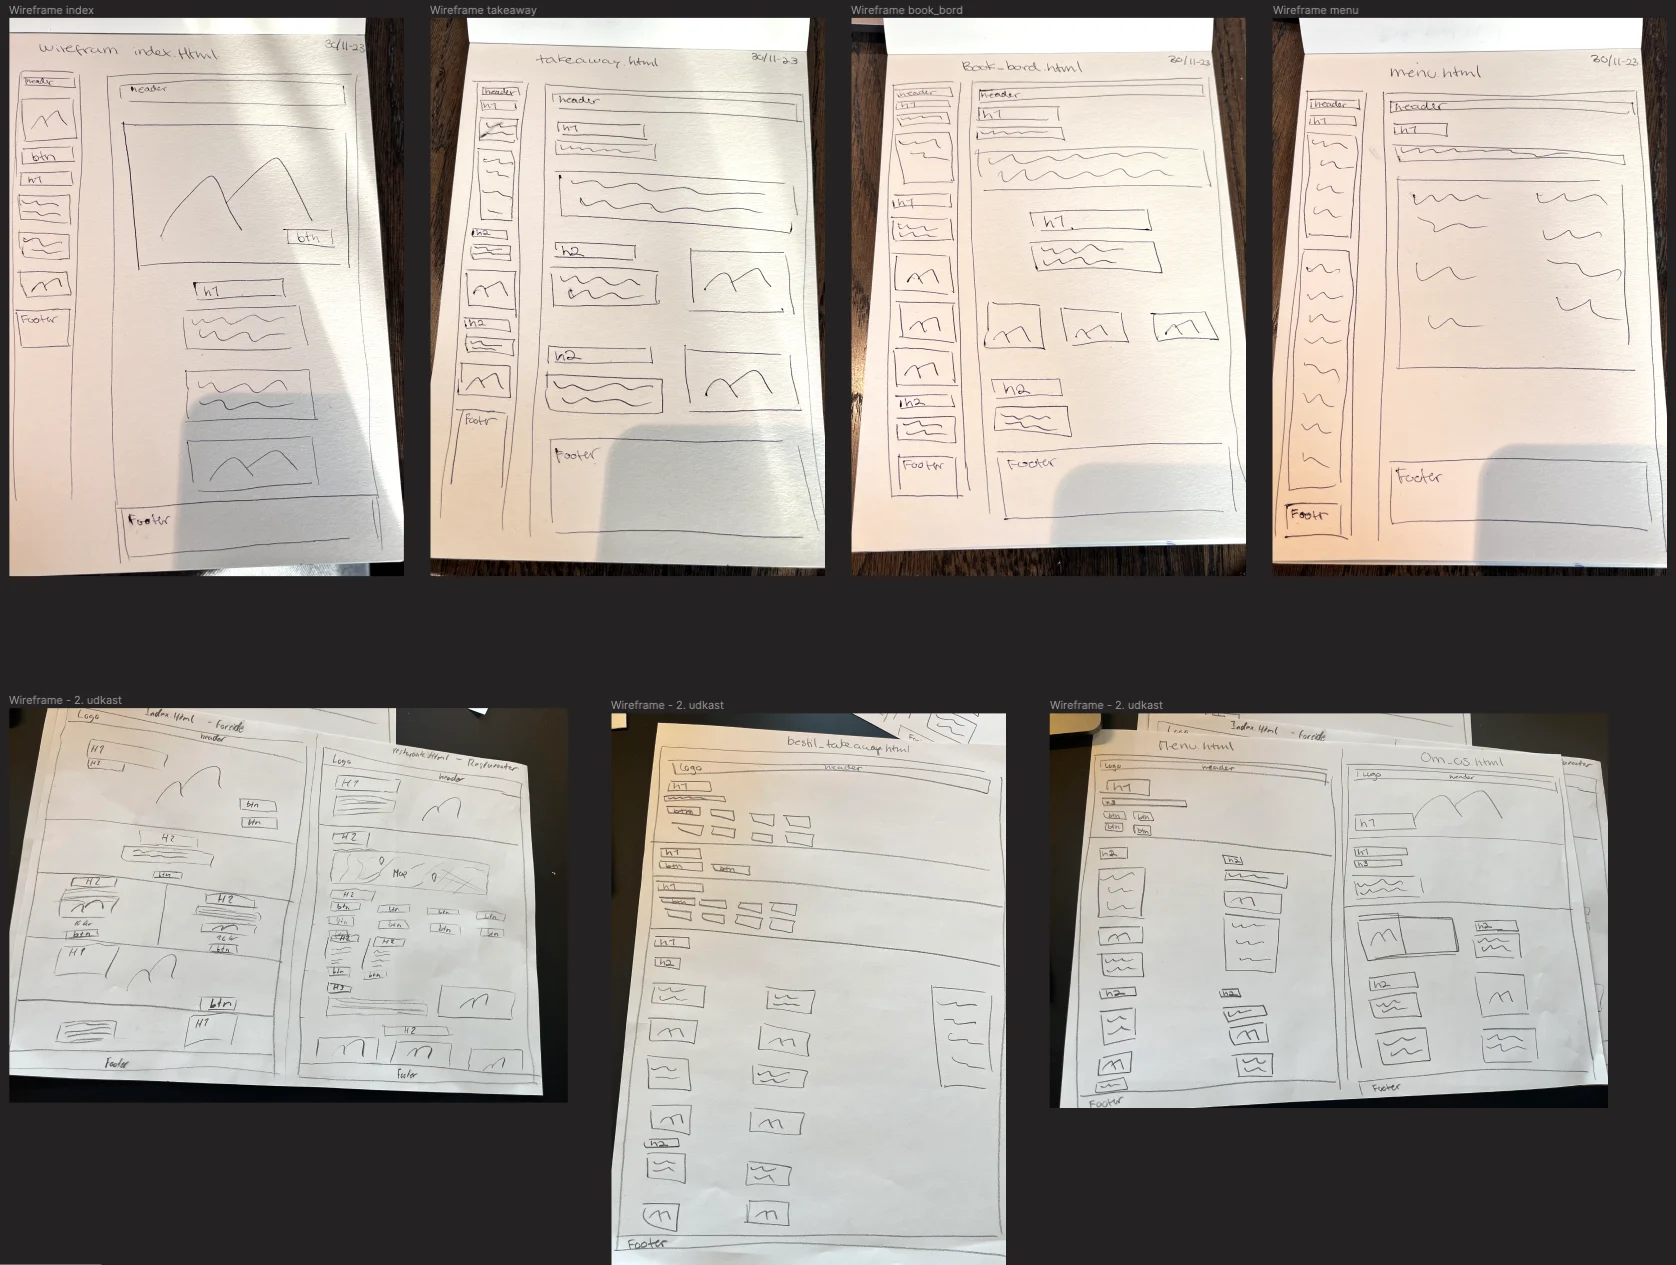 Wireframe index
wirefram index.Html
30/11-23
header
btn
h1
Footer
header
btn
h1
Footer
Wireframe takeaway
takeaway.html
30/11-23
header
h1
h2
h2
Footr
header
h1
h2
h2
Footer
Wireframe book_bord
Book_bord.html
30/11-23
header
h1
h1
h2
Footer
header
h1
h1
h2
Footer
Wireframe menu
menu.html
30/11-23
header
h1
Footr
header
h1
Footer
Wireframe - 2. udkast
Logo
Index.Html - Forside
header
H1
btn
btn
H2
btn
H2
btn
H2
btn
H1
btn
H1
Footer
Logo
header
H1
H2
Map
H2
btn btn btn btn
btn btn btn btn
H2
btn btn
H3
H2
Footer
Wireframe - 2. udkast
bestil_takeaway.html
Logo header
h1
btn
h1
btn btn
h1
btn
h1
h2
h2
Footer
Wireframe - 2. udkast
Index.Html - Forside
Menu.html
Logo header
h1
h3
btn btn
btn btn
h2 h2
h2 h2
Footer
Om_os.html
Logo header
h1
h1
h3
h2
h2
Footer